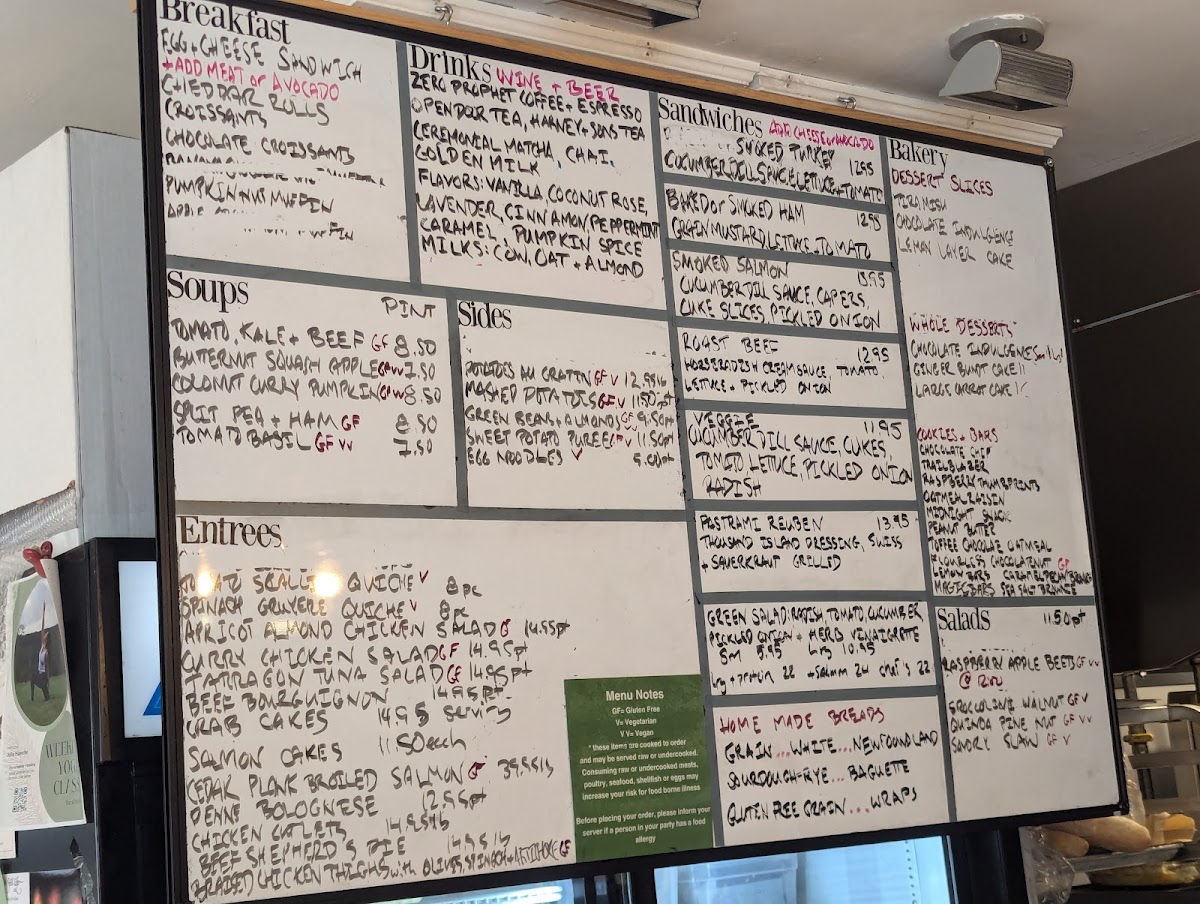 Breakfast
EGG + CHEESE SANDWICH
+ADD MEAT or AVOCADO
CHEDDAR ROLLS
CROISSANTS
CHOCOLATE CROISSANTS
PUMPKIN NUT MUFFIN
APPLE
MUFFIN
Drinks WINE + BEER
ZERO PROPHET COFFEE + ESPRESSO
OPEN DOOR TEA, HARNEY + SONS TEA
CEREMONIAL MATCHA, CHAI,
GOLDEN MILK
FLAVORS: VANILLA, COCONUT ROSE,
LAVENDER, CINNAMON, PEPPERMINT
CARAMEL, PUMPKIN SPICE
MILKS: COW, OAT + ALMOND
Soups
PINT
TOMATO, KALE + BEEF GF 8.50
BUTTERNUT SQUASH APPLE GF VV 7.50
COCONUT CURRY PUMPKIN GF VV 8.50
SPLIT PEA + HAM GF 8.50
TOMATO BASIL GF VV 7.50
Sides
POTATOES AU GRATIN GF V 12.95lb
MASHED POTATOES GF V 11.50pt
GREEN BEANS + ALMONDS GF 9.50pt
SWEET POTATO PUREE GF V 11.50pt
EGG NOODLES V 5.00pt
Entrees
TOMATO SCALLION QUICHE V 8pc
SPINACH GRUYERE QUICHE V 8pc
APRICOT ALMOND CHICKEN SALAD GF 14.95pt
CURRY CHICKEN SALAD GF 14.95pt
TARRAGON TUNA SALAD GF 14.95pt
BEEF BOURGUIGNON 14.95pt
CRAB CAKES 14.95
SALMON CAKES 11.50each
CEDAR PLANK BROILED SALMON GF 39.95lb
PENNE BOLOGNESE 12.95pt
CHICKEN CUTLETS 14.95lb
BEEF SHEPHERD'S PIE 14.95lb
BRAISED CHICKEN THIGHS with OLIVES, SPINACH + ARTICHOKE GF
Menu Notes
GF= Gluten Free
V= Vegetarian
V V= Vegan
* these items are cooked to order
and may be served raw or undercooked.
Consuming raw or undercooked meats,
poultry, seafood, shellfish or eggs may
increase your risk for food borne illness
Before placing your order, please inform your
server if a person in your party has a food
allergy
Sandwiches ADD CHEESE or AVOCADO
SMOKED TURKEY 12.95
CUCUMBER DILL SAUCE, LETTUCE + TOMATO
BAKED or SMOKED HAM 12.95
GRAIN MUSTARD, LETTUCE, TOMATO
SMOKED SALMON 13.95
CUCUMBER DILL SAUCE, CAPERS,
CUKE SLICES, PICKLED ONION
ROAST BEEF 12.95
HORSERADISH CREAM SAUCE, TOMATO,
LETTUCE + PICKLED ONION
VEGGIE 11.95
CUCUMBER DILL SAUCE, CUKES,
TOMATO, LETTUCE, PICKLED ONION
RADISH
PASTRAMI REUBEN 13.95
THOUSAND ISLAND DRESSING, SWISS
+ SAUERKRAUT GRILLED
GREEN SALAD: RADISH, TOMATO, CUCUMBER
PICKLED ONION + HERB VINAIGRETTE
SM 8.95 Lrg 10.95
Lrg + protein 22 + salmon 24 chef's 22
HOME MADE BREADS
GRAIN...WHITE...NEWFOUNDLAND
SOURDOUGH-RYE...BAGUETTE
GLUTEN FREE GRAIN...WRAPS
Bakery
DESSERT SLICES
TIRAMISU
CHOCOLATE INDULGENCE
LEMON LAYER CAKE
WHOLE DESSERTS
CHOCOLATE INDULGENCE
GINGER BUNDT CAKE
LARGE CARROT CAKE
COOKIES + BARS
CHOCOLATE CHIP
TRAILBLAZER
RASPBERRY THUMBPRINTS
OATMEAL RAISIN
MIDNIGHT SNACK
PEANUT BUTTER
TOFFEE CHOCOLATE OATMEAL
FLOURLESS CHOCOLATE NUT GF
LEMON BARS CARAMEL PECAN BROWNIE
MAGIC BARS SEA SALT BROWNIE
Salads 11.50pt
RASPBERRY APPLE BEETS GF VV
BROCCOLINI WALNUT GF V
QUINOA PINE NUT GF VV
SAVORY SLAW GF V